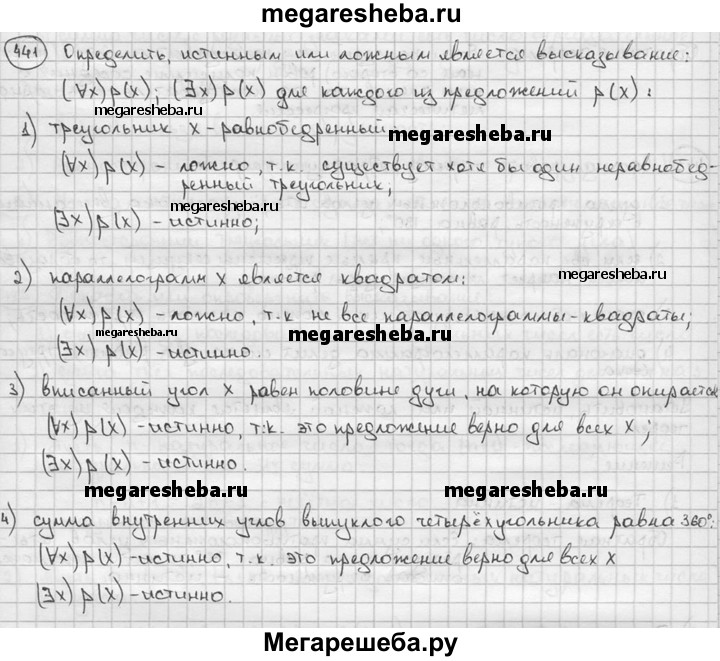 megaresheba.ru
441 Определить, истинным или ложным является высказывание:
(∀x)p(x); (∃x)p(x) для каждого из предложений p(x):
megaresheba.ru
1) треугольник x - равнобедренный:
megaresheba.ru
(∀x)p(x) - ложно, т.к. существует хотя бы один неравнобед-
ренный треугольник;
megaresheba.ru
(∃x)p(x) - истинно;
2) параллелограмм x является квадратом:
megaresheba.ru
(∀x)p(x) - ложно, т.к не все параллелограммы - квадраты;
megaresheba.ru
megaresheba.ru
(∃x)p(x) - истинно.
3) вписанный угол x равен половине дуги, на которую он опирается
(∀x)p(x) - истинно, т.к. это предложение верно для всех x;
(∃x)p(x) - истинно.
megaresheba.ru
megaresheba.ru
4) сумма внутренних углов выпуклого четырёхугольника равна 360°:
(∀x)p(x) - истинно, т.к. это предложение верно для всех x
megaresheba.ru
megaresheba.ru
(∃x)p(x) - истинно.
Мегарешеба.ру